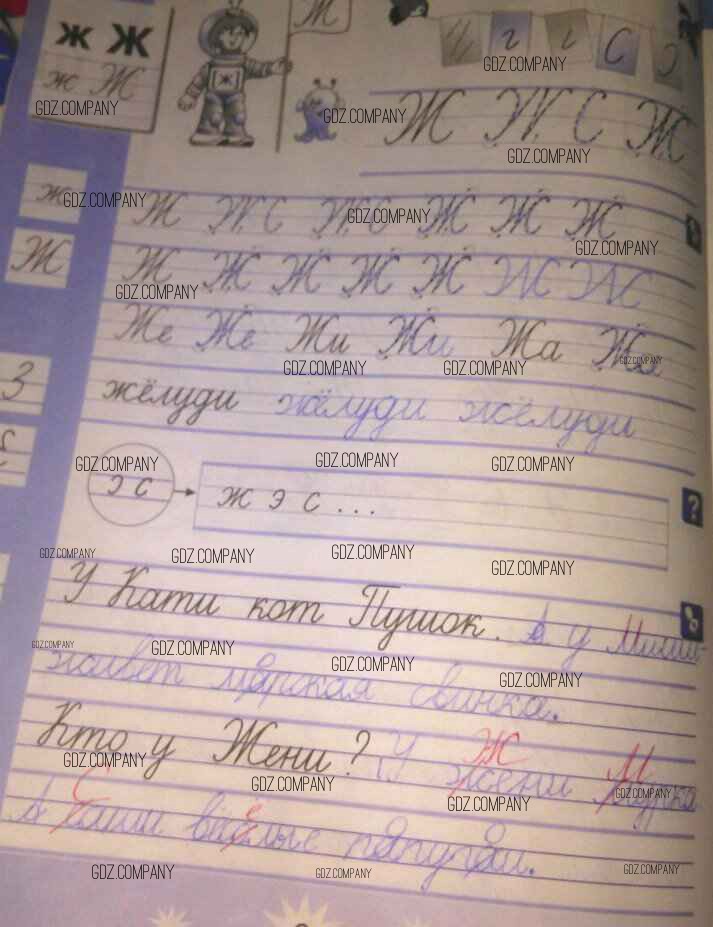 ж Ж
ж Ж
GDZ.COMPANY
Ж
Ж
И г г С Э
GDZ.COMPANY
GDZ.COMPANY
Ж Ж С Ж
GDZ.COMPANY
ж GDZ.COMPANY Ж Ж С Ж С Ж Ж Ж
GDZ.COMPANY
GDZ.COMPANY
Ж Ж Ж Ж Ж Ж
GDZ.COMPANY
Же Же Жи Жи Жа Жа
GDZ.COMPANY GDZ.COMPANY GDZ.COMPANY
З жёлуди жёлуди жёлуди
GDZ.COMPANY GDZ.COMPANY GDZ.COMPANY
э с ж э с ... ?
GDZ.COMPANY GDZ.COMPANY GDZ.COMPANY GDZ.COMPANY
У Кати кот Пушок. А у Миши
GDZ.COMPANY GDZ.COMPANY GDZ.COMPANY GDZ.COMPANY
живёт морская свинка.
Кто у Жени? У Жени Мурка
GDZ.COMPANY GDZ.COMPANY GDZ.COMPANY GDZ.COMPANY
GDZ.COMPANY GDZ.COMPANY GDZ.COMPANY